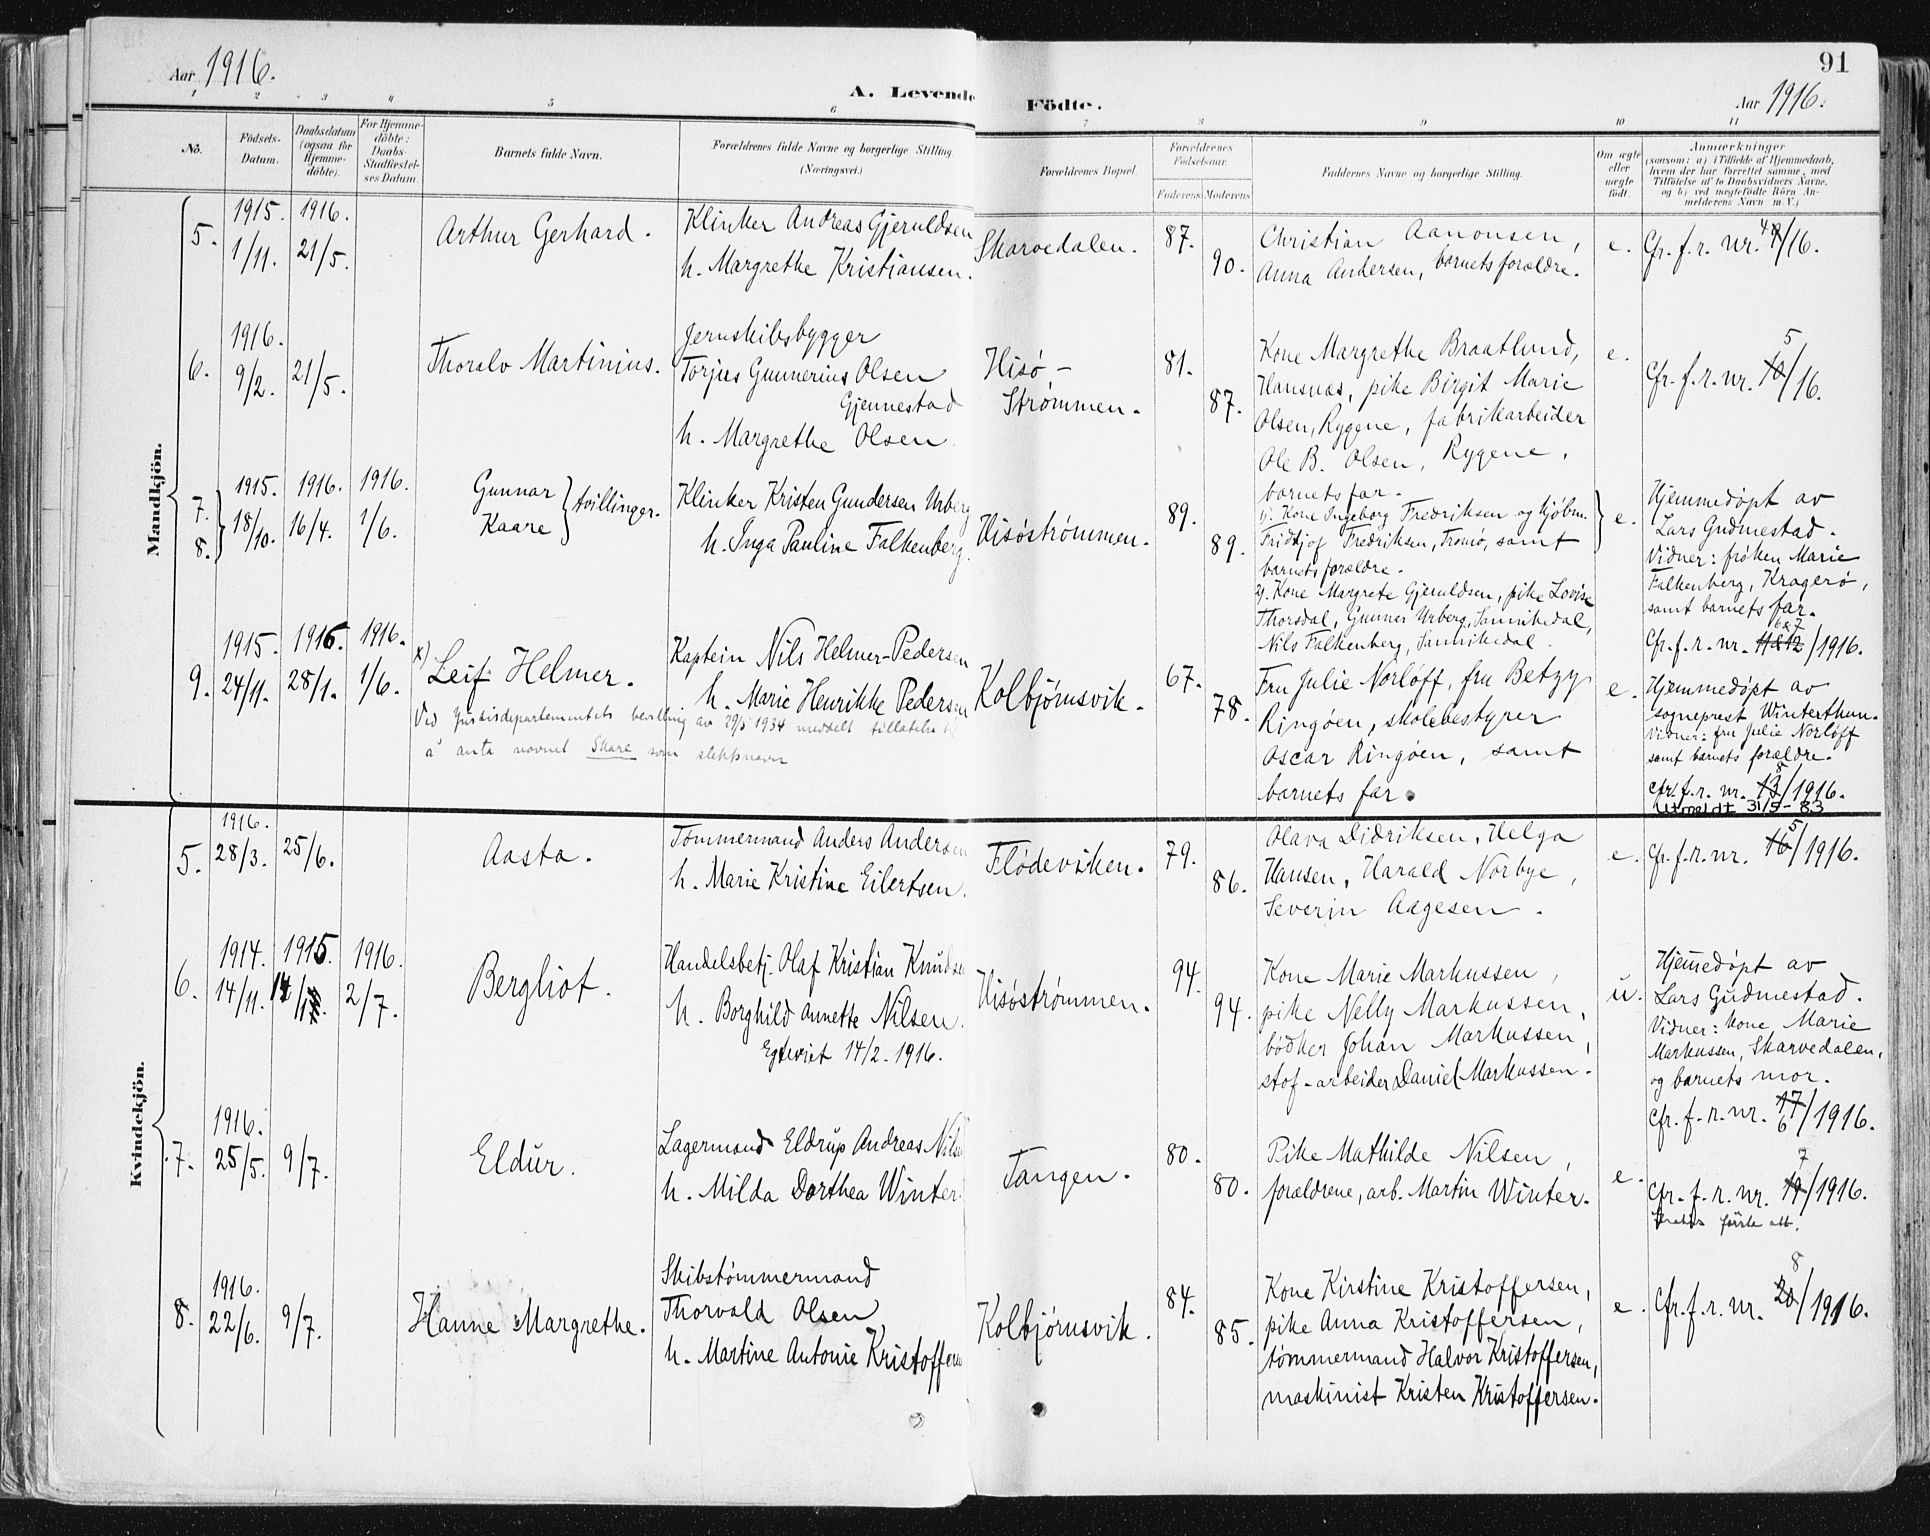 91
Aar 1916.
A. Levende Födte.
Aar 1916.
1 2 3 4 5 6 7 8 9 10 11
No.
Födsels-
Datum.
Daabsdatum
(ogsaa for
Hjemme-
döbte).
For Hjemme-
döbte:
Daabs-
Stadfæstel-
ses Datum.
Barnets fulde Navn.
Forældrenes fulde Navne og borgerlige Stilling
(Næringsvei.)
Forældrenes Bopæl.
Forældrenes
Födselsaar.
Faderens Moderens
Faddernes Navne og borgerlige Stilling.
Om ægte
eller
uægte
födt.
Anmærkninger
(saasom: a) i Tilfælde af Hjemmedaab,
hvem der har forrettet samme, med
Tilföielse af to Daabsvidners Navne,
og b) ved uægtefödte Börn An-
melderens Navn m. V.)
Mandkjön.
5.
1915.
1/11.
1916.
21/5.
Arthur Gerhard.
Klinker Andreas Gjeruldsen
h. Margrethe Kristiansen.
Skarvedalen.
87.
90.
Christian Aanonsen,
Anna Andersen, barnets forældre.
e.
Cfr. f. r. nr. /16.
6.
1916.
9/2.
21/5.
Thoralv Martinius.
Jernskibsbygger
Torjus Gunnerius Olsen
Gjennestad
h. Margrethe Olsen.
Hisø-
Strømmen.
81.
87.
Kone Margrethe Braatlund,
Hansnæs, pike Birgit Marie
Olsen, Rygene, fabrikarbeider
Ole B. Olsen, Rygene,
barnets far.
e.
5
Cfr. f. r. nr. 10/16.
7.
8.
1915.
18/10.
1916.
16/4.
1916.
1/6.
Gunnar
Kaare
tvillinger.
Klinker Kristen Gundersen Urberg
h. Inga Pauline Falkenberg.
Hisøstrømmen.
89.
89.
1). Kone Ingeborg Fredriksen og kjøbm.
Fridtjof Fredriksen, Tromø, samt
barnets forældre.
2). Kone Margrete Gjeruldsen, pike Lovise
Thorsdal, Gunner Urberg, Sannikedal,
Nils Falkenberg, Sannikedal.
e.
Hjemmedøpt av
Lars Gudmestad.
Vidner: frøken Marie
Falkenberg, Kragerø,
samt barnets far.
6&7
Cfr. f. r. nr. 11&12/1916.
9.
1915.
24/11.
1916.
28/1.
1916.
1/6.
x)
Leif Helmer.
Kaptein Nils Helmer-Pedersen
h. Marie Henrikke Pedersen
Ved justisdepartementets bevilling av 29/5 1934 meddelt tillatelse til
å anta navnet Skare som slektsnavn
Kolbjørnsvik.
67.
78.
Fru Julie Norløff, fru Betzy
Ringøen, skolebestyrer
Oscar Ringøen, samt
barnets far.
e.
Hjemmedøpt av
sogneprest Winterthun.
Vidner: fru Julie Norløff
samt barnets forældre.
8
Cfr. f. r. nr. 13/1916.
Utmeldt 31/5-83
Kvindekjön.
5.
1916.
28/3.
25/6.
Aasta.
Tømmermand Anders Andersen
h. Marie Kristine Eilertsen.
Flødeviken.
79.
86.
Olava Didriksen, Helga
Hansen, Harald Norbye,
Severin Aagesen.
e.
5
Cfr. f. r. nr. 16/1916.
6.
1914.
14/11.
1915.
14/
1916.
2/7.
Bergliot.
Handelsbetj. Olaf Kristian Knudsen
h. Borghild Annette Nilsen.
Egteviet 14/2-1916.
Hisøstrømmen.
94.
94.
Kone Marie Markussen,
pike Nelly Markussen,
bødker Johan Markussen,
stof-arbeider Daniel Markussen.
u.
Hjemmedøpt av
Lars Gudmestad.
Vidner: kone Marie
Markussen, Skarvedalen,
og barnets mor.
Cfr. f. r. nr. 17/1916.
6
7.
1916.
25/5.
9/7.
Eldur.
Lagermand Eldrup Andreas Nilsen
h. Milda Dorthea Winter.
Tangen.
80.
80.
Pike Mathilde Nilsen,
forældrene, arb. Martin Winter.
e.
7
Cfr. f. r. nr. 19/1916.
første att.
8.
1916.
22/6.
9/7.
Hanne Margrethe.
Skibstømmermand
Thorvald Olsen
h. Martine Antonie Kristoffersen
Kolbjørnsvik.
84.
85.
Kone Kirstine Kristoffersen,
pike Anna Kristoffersen,
tømmermand Halvor Kristoffersen,
maskinist Kristen Kristoffersen.
e.
8
Cfr. f. r. nr. 20/1916.